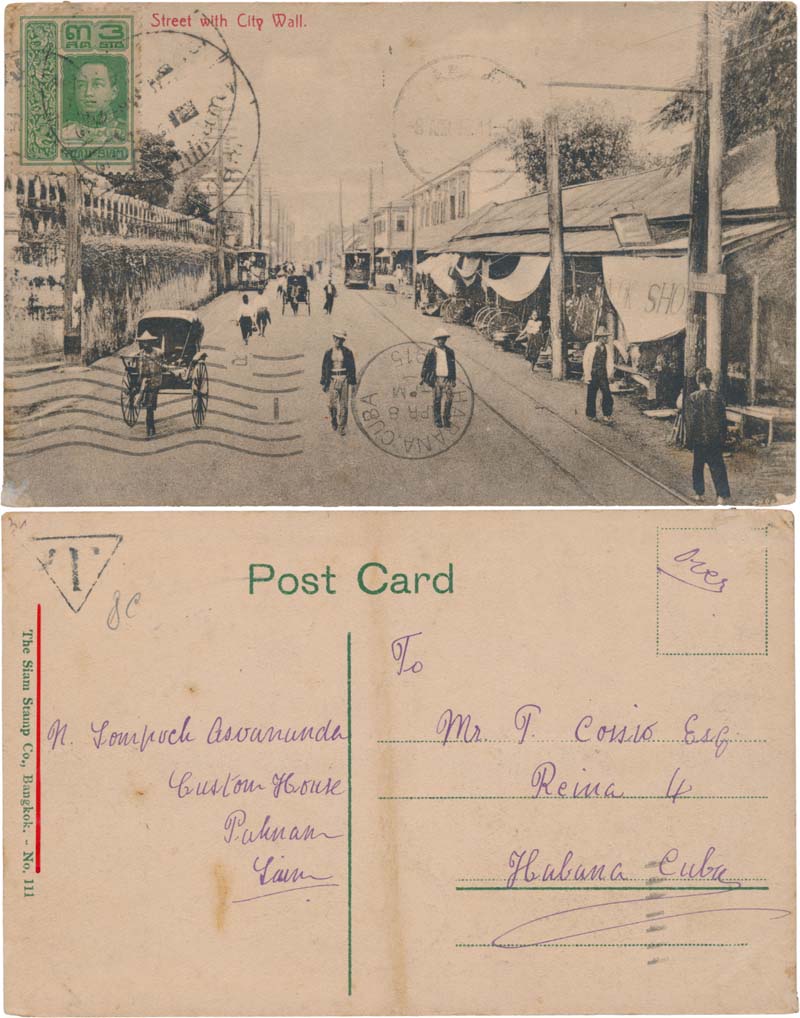 Street with City Wall.
๓ 3
สต STG
HABANA, CUBA
APR 8
M
1915
SHO
Post Card
T
8c
Over
The Siam Stamp Co., Bangkok. - No. 111
To
N. Sompoch Asvananda
Custom House
Paknam
Siam
Mr. T. Cossio Esq.
Reina 4
Habana Cuba